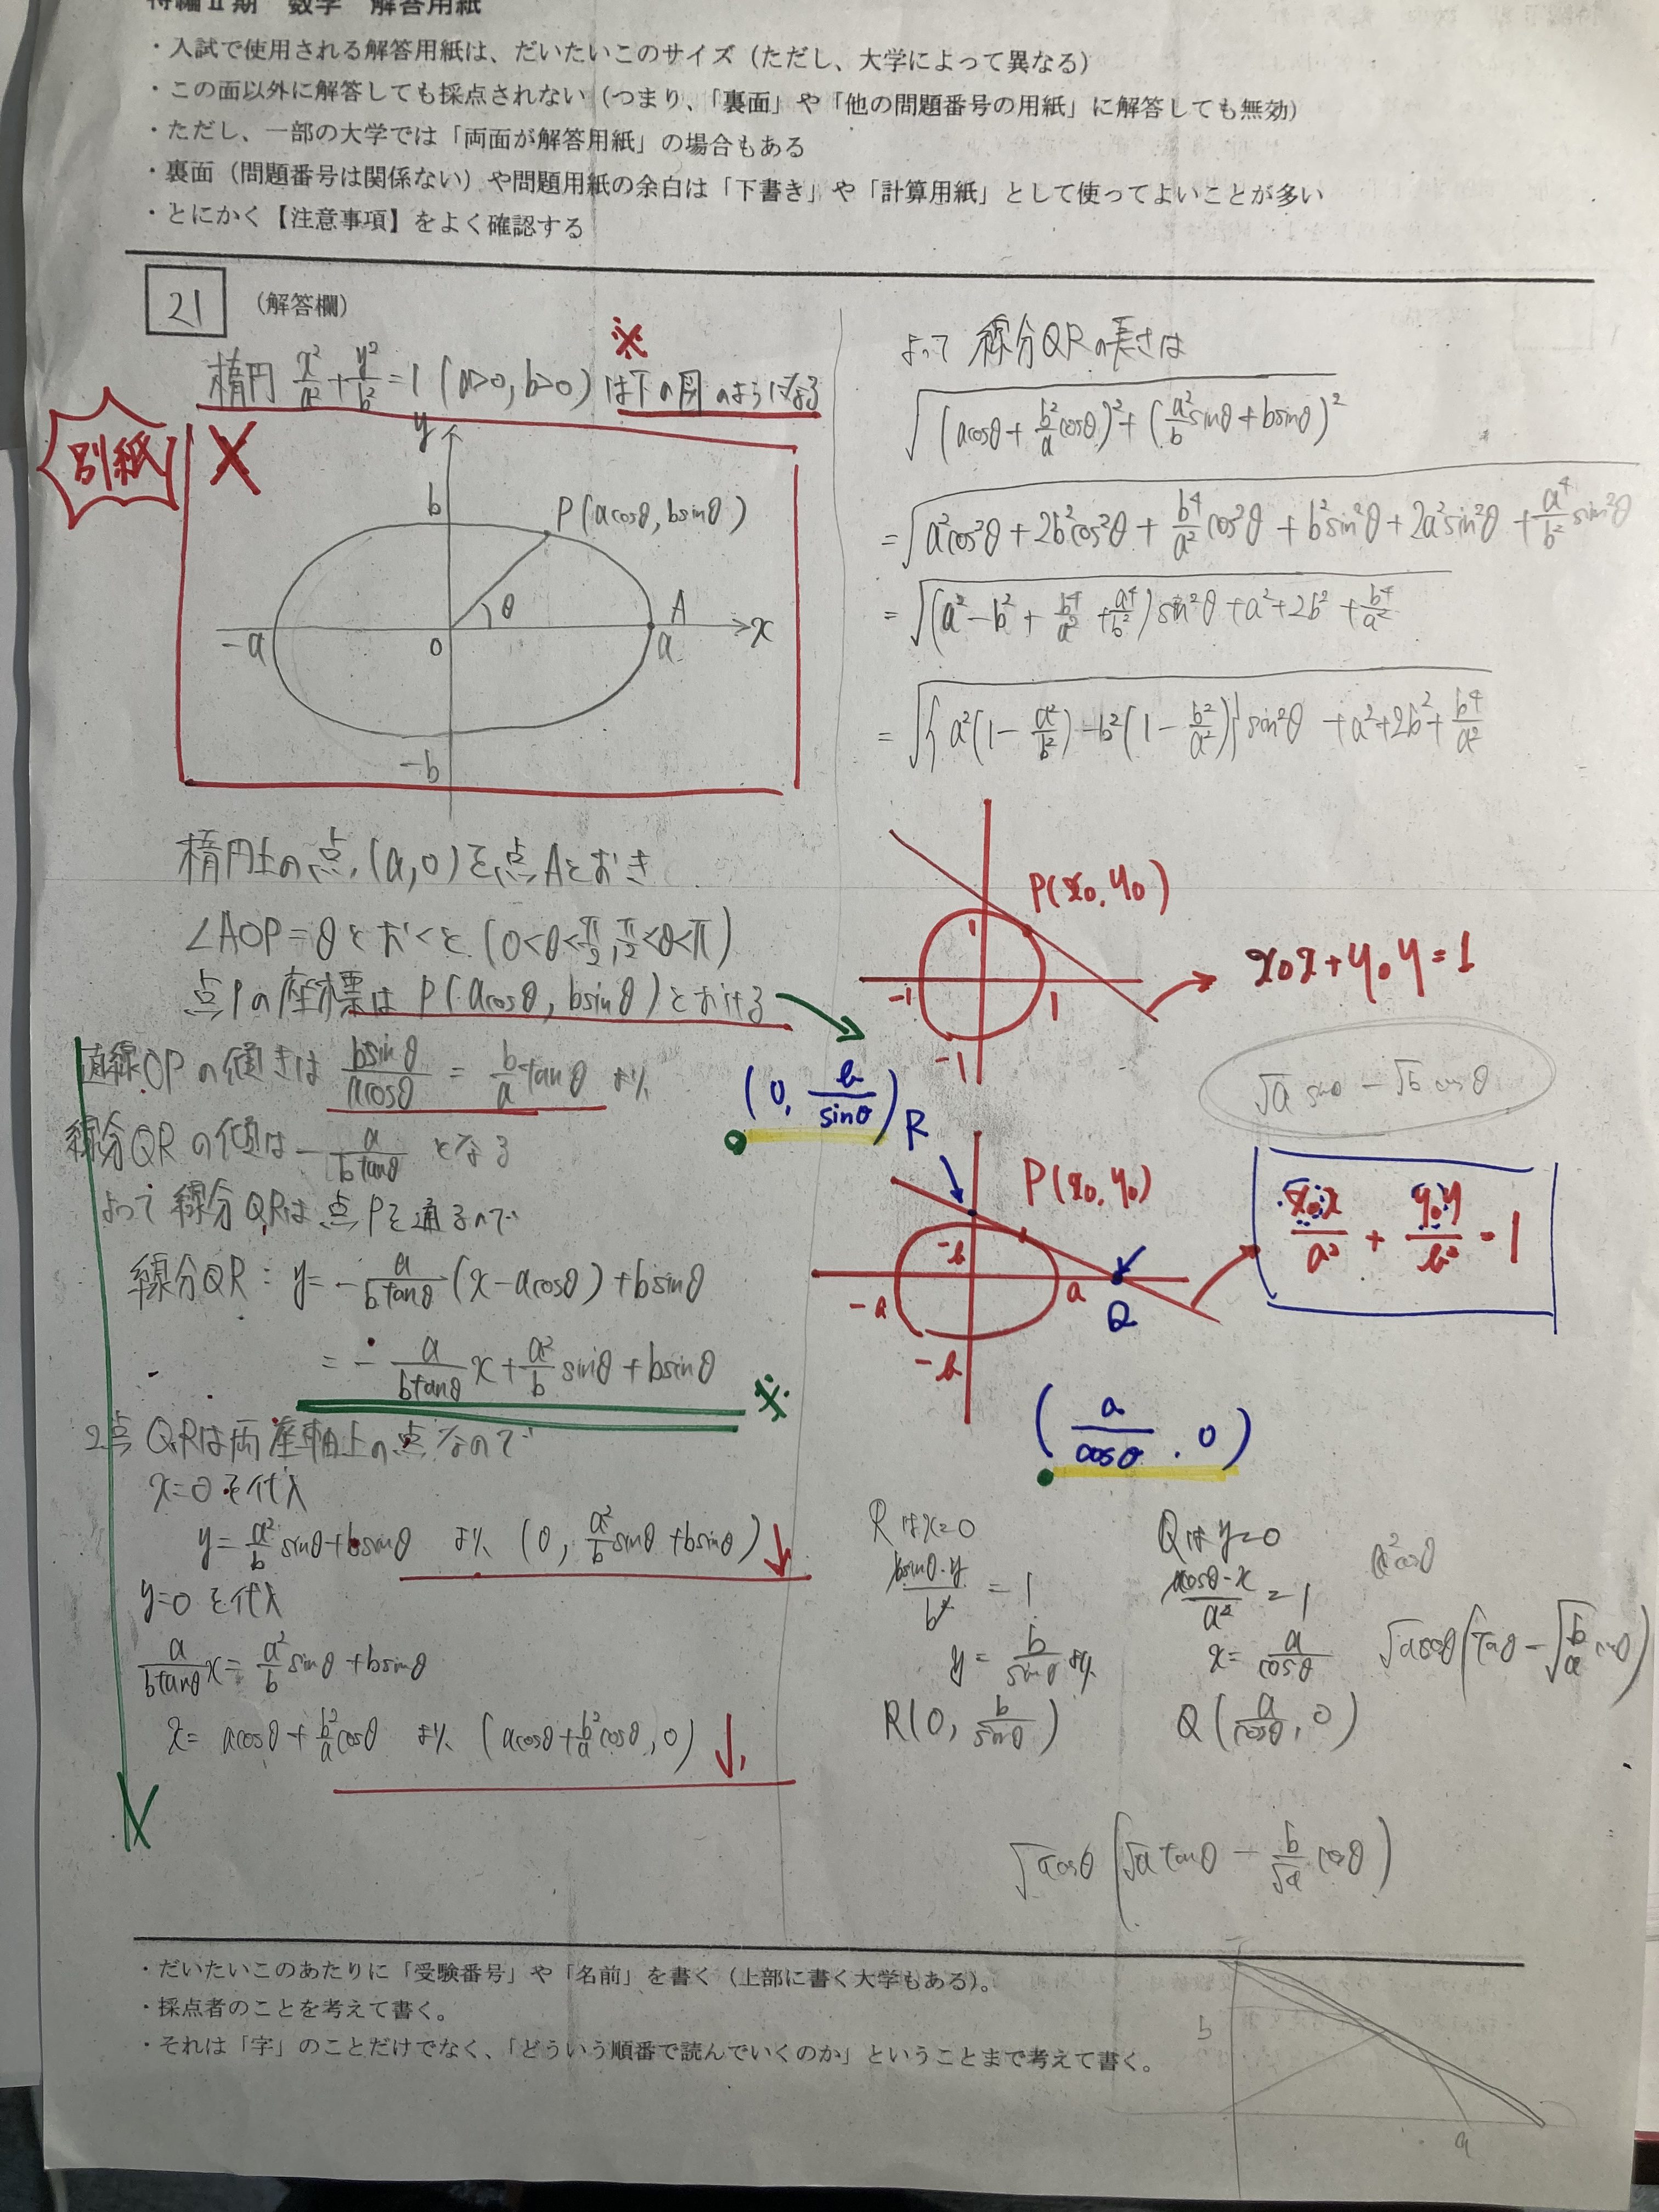 特編Ⅱ期 数学 解答用紙
・入試で使用される解答用紙は、だいたいこのサイズ（ただし、大学によって異なる）
・この面以外に解答しても採点されない（つまり、「裏面」や「他の問題番号の用紙」に解答しても無効）
・ただし、一部の大学では「両面が解答用紙」の場合もある
・裏面（問題番号は関係ない）や問題用紙の余白は「下書き」や「計算用紙」として使ってよいことが多い
・とにかく【注意事項】をよく確認する
21 （解答欄）
※
楕円 x²/a² + y²/b² = 1 (a>0, b>0) は下の図のようになる
別紙
y
b
P(acosθ, bsinθ)
θ
A
-a
0
a
x
-b
楕円上の点,(a,0)を点Aとおき
∠AOP=θとおくと (0<θ<π/2, π/2<θ<π)
点Pの座標は P(acosθ, bsinθ)とおける
直線OPの傾きは bsinθ/acosθ = b/a tanθ より
線分QRの傾は -a/(b tanθ) となる
よって線分QRは点Pを通るので
線分QR: y = -a/(b tanθ) (x-acosθ)+bsinθ
= -a/(b tanθ) x + a²/b sinθ + bsinθ
※
2点Q,Rは両座軸上の点なので
x=0を代入
y = a²/b sinθ + bsinθ より (0, a²/b sinθ + bsinθ)
y=0を代入
a/(b tanθ) x = a²/b sinθ + bsinθ
x = acosθ + b²/a cosθ より (acosθ + b²/a cosθ, 0)
よって線分QRの長さは
√((acosθ + b²/a cosθ)² + (a²/b sinθ + bsinθ)²)
= √(a²cos²θ + 2b²cos²θ + b⁴/a² cos²θ + b²sin²θ + 2a²sin²θ + a⁴/b² sin²θ)
= √((a² - b² + b⁴/a² + a⁴/b²) sin²θ + a² + 2b² + b⁴/a²)
= √({a²(1 - a²/b²) - b²(1 - b²/a²)} sin²θ + a² + 2b² + b⁴/a²)
P(x₀, y₀)
1
-1
1
-1
x₀x + y₀y = 1
√a sinθ - √b cosθ
(0, b/sinθ) R
P(x₀, y₀)
-b
-a
a
Q
-b
x₀x/a² + y₀y/b² = 1
(a/cosθ, 0)
Rはx=0
bsinθ・y/b² = 1
y = b/sinθ より
R(0, b/sinθ)
Qはy=0
acosθ・x/a² = 1
x = a/cosθ
Q(a/cosθ, 0)
a²cosθ
√acosθ (√a tanθ - b/√a cosθ)
b
a
・だいたいこのあたりに「受験番号」や「名前」を書く（上部に書く大学もある）。
・採点者のことを考えて書く。
・それは「字」のことだけでなく、「どういう順番で読んでいくのか」ということまで考えて書く。